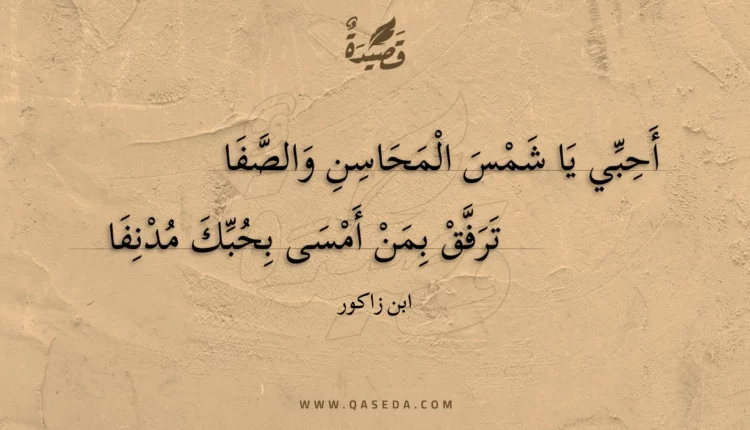 قَصِيْدَةٌ
أَحِبِّي يَا شَمْسَ الْمَحَاسِنِ وَالصَّفَا
تَرَفَّقْ بِمَنْ أَمْسَى بِحُبِّكَ مُدْنِفَا
ابن زاكور
WWW.QASEDA.COM